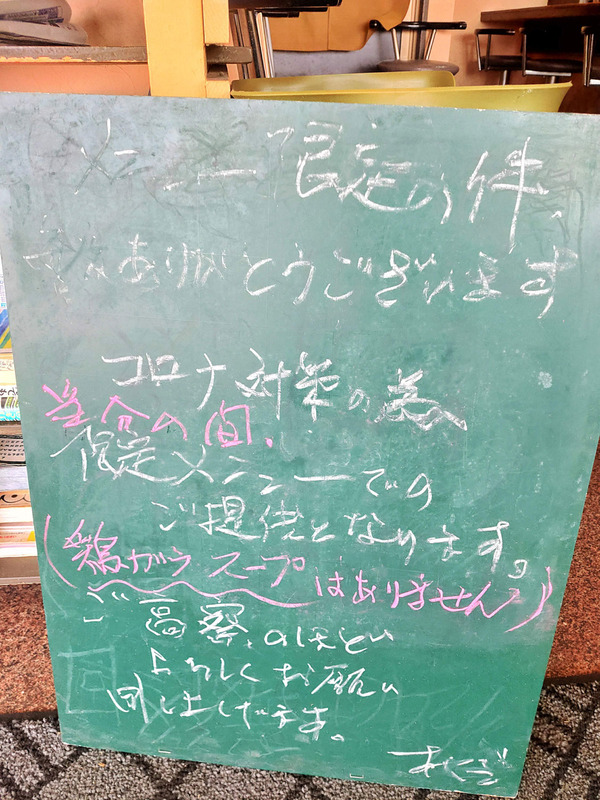 メニュー限定の件、
ありがとうございます
コロナ対策の為
当分の間、
限定メニューでの
ご提供となります。
(鶏ガラスープはありません)
ご高察のほど
よろしくお願い
申し上げます。